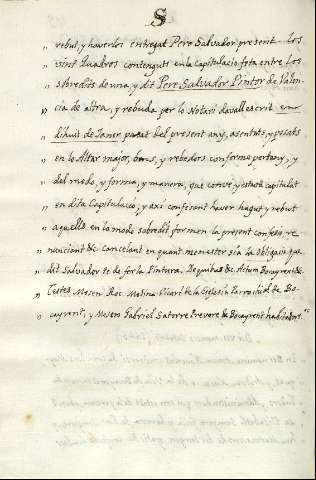 S
„ rebut, y haverlos entregat Pere Salvador present Los
„ vint Quadros contenguts en la Capitulacio feta entre Los
„ sobredits de una, y dit Pere Salvador Pintor de Valen-
„ cia de altra, y rebuda per lo Notari davall escrit en
„ dihuit de Janer pasat del present any, asentats, y posats
„ en lo Altar major, bons, y rebedors conforme pertany, y
„ del modo, y forma, y manera, que conve, y estava capitulat
„ en dita Capitulacio, y axi confesant haver hagut y rebut
„ aquells en lo modo sobredit formen la present confesio, re-
„ nunciant &c. Cancelant en quant menester sia la obligacio que
„ dit Salvador te de fer la Pintura. De quibus &c. Actum Bocayrent &c
„ Testes Mosen Roc Molina Vicari de la Esglesia Parrochial de Bo-
cayrent, y Mosen Gabriel Satorre Prevere de Bocayrent habitadors. &c